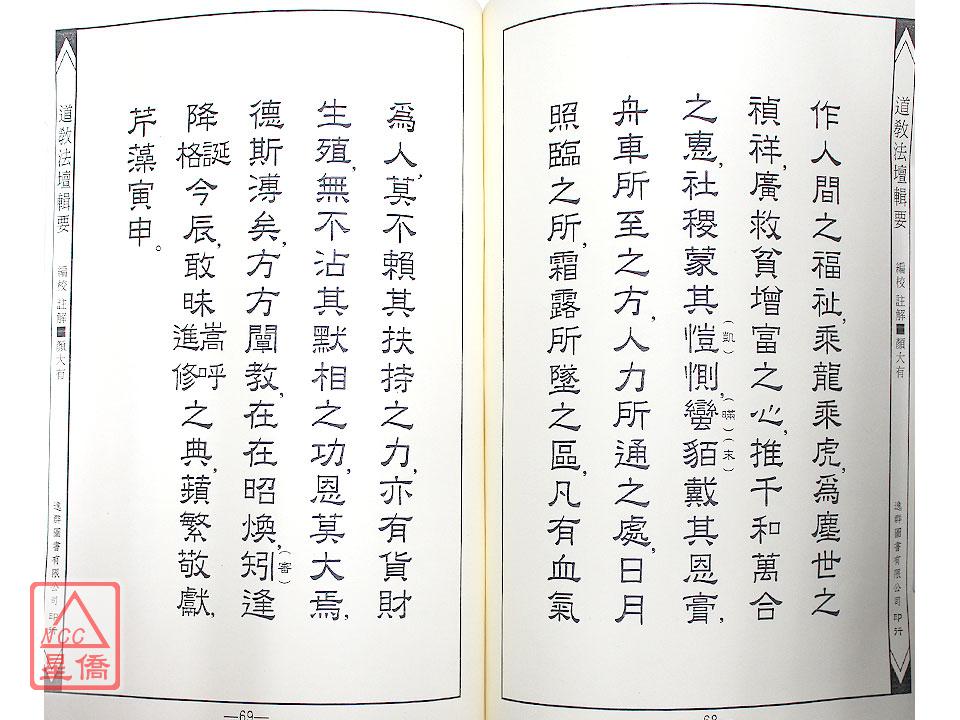 道教法壇輯要
編校 註解■顏大有
逸群圖書有限公司 印行
作人間之福祉，乘龍乘虎，為塵世之
禎祥，廣救貧增富之心，推千和萬合
之惠，社稷蒙其愷惻，蠻貊戴其恩膏，
（凱）（瞞）（末）
舟車所至之方，人力所通之處，日月
照臨之所，霜露所墜之區，凡有血氣
68
為人，莫不賴其扶持之力，亦有貨財
生殖，無不沾其默相之功，恩莫大焉，
德斯溥矣，方方闡教，在在昭煥，矧逢
（審）
降誕
格今辰，敢昧嵩呼
進修之典，蘋繁敬獻，
芹藻寅申。
道教法壇輯要
編校 註解■顏大有
逸群圖書有限公司 印行
—69—
NCC
星僑